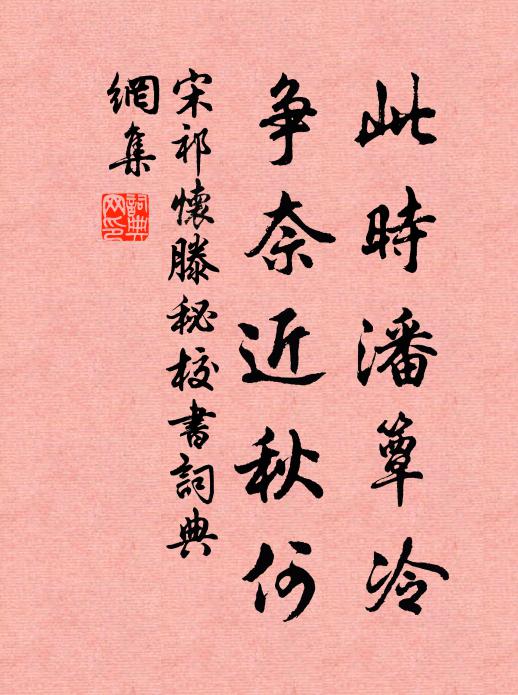 此時潘簟冷
争奈近秋何
宋祁懷滕秘校書詞典
網集
詞典
网印